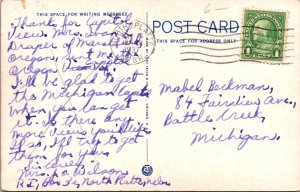 THIS SPACE FOR WRITING MESSAGES
Thank for Capitol
View. Mrs. Ivan C.
Draper of Marshfield,
Oregon, sent me the
Oregon
I'll be glad to get
the Michigan Capitol
when you can get
it. Is there any
more Views you'd like
I'll try to get
them for you.
Sincerely
Wilson
North Platte, Nebr.
POST CARD
THIS SPACE FOR ADDRESS ONLY
1
Mabel Beckman,
84 Fairview Ave,
Battle Creek,
Michigan.